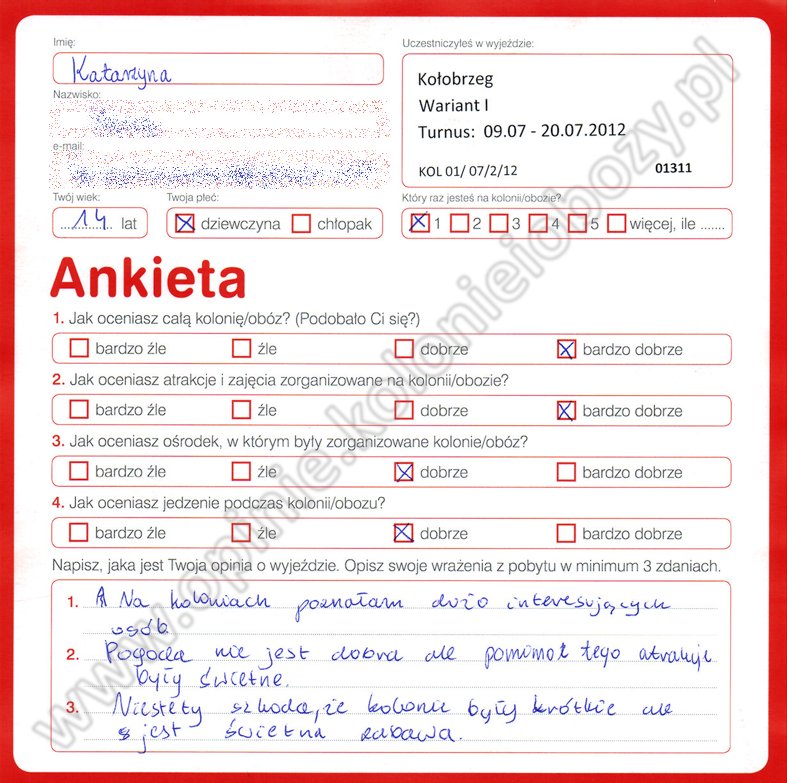 Imię:
Katarzyna
Nazwisko:
e-mail:
Twój wiek:
14 lat
Twoja płeć:
dziewczyna chłopak
Uczestniczyłeś w wyjeździe:
Kołobrzeg
Wariant I
Turnus: 09.07 - 20.07.2012
KOL 01/ 07/2/12 01311
Który raz jesteś na kolonii/obozie?
1 2 3 4 5 więcej, ile .......
Ankieta
1. Jak oceniasz całą kolonię/obóz? (Podobało Ci się?)
bardzo źle źle dobrze bardzo dobrze
2. Jak oceniasz atrakcje i zajęcia zorganizowane na kolonii/obozie?
bardzo źle źle dobrze bardzo dobrze
3. Jak oceniasz ośrodek, w którym były zorganizowane kolonie/obóz?
bardzo źle źle dobrze bardzo dobrze
4. Jak oceniasz jedzenie podczas kolonii/obozu?
bardzo źle źle dobrze bardzo dobrze
Napisz, jaka jest Twoja opinia o wyjeździe. Opisz swoje wrażenia z pobytu w minimum 3 zdaniach.
1. Na koloniach poznałam dużo interesujących
osób.
2. Pogoda nie jest dobra ale pomimo tego atrakcje
były świetne.
3. Niestety szkoda, że kolonie były krótkie ale
jest świetna zabawa.
www.opinie.kolonieiobozy.pl